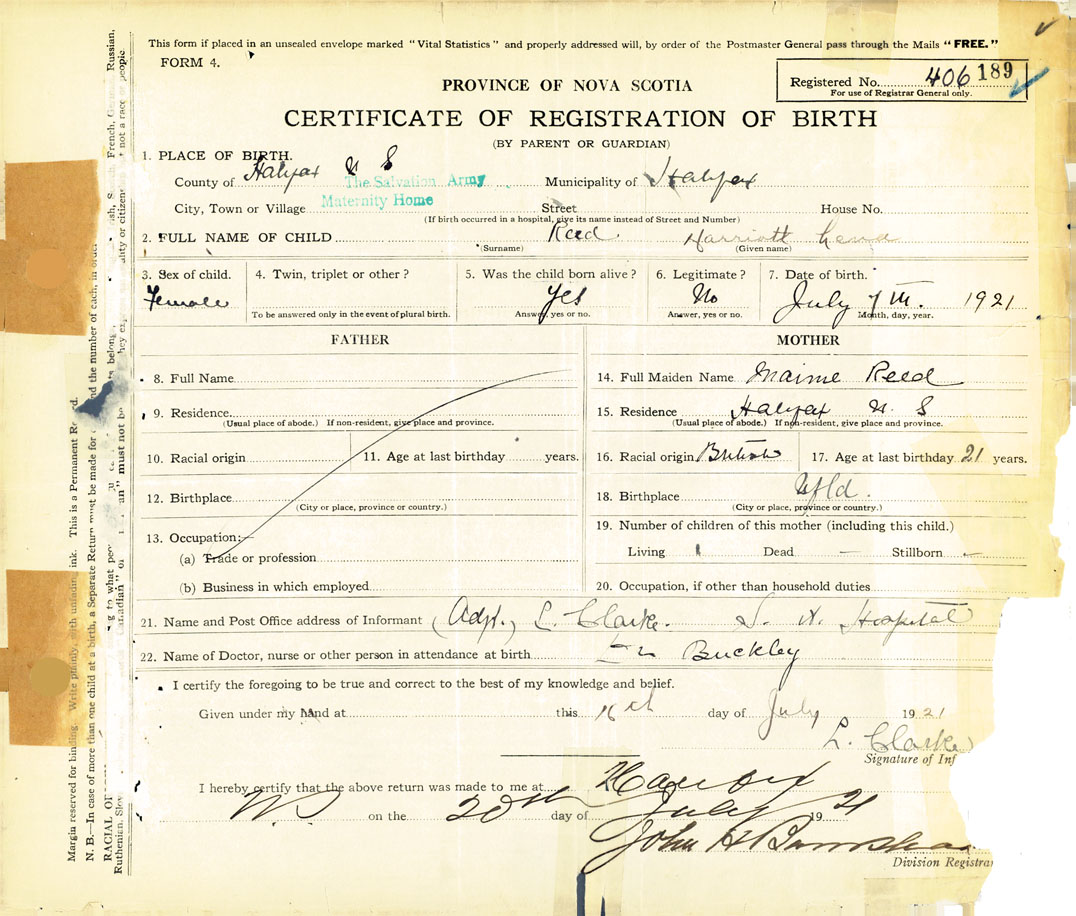 This form if placed in an unsealed envelope marked "Vital Statistics" and properly addressed will, by order of the Postmaster General pass through the Mails "FREE."
FORM 4.
PROVINCE OF NOVA SCOTIA
Registered No. 406 189
For use of Registrar General only.
CERTIFICATE OF REGISTRATION OF BIRTH
(BY PARENT OR GUARDIAN)
1. PLACE OF BIRTH.
County of Halifax N S Municipality of Halifax
The Salvation Army
Maternity Home
City, Town or Village Street House No.
(If birth occurred in a hospital, give its name instead of Street and Number)
2. FULL NAME OF CHILD Reed Harriott Lena
(Surname) (Given name)
3. Sex of child. 4. Twin, triplet or other? 5. Was the child born alive? 6. Legitimate? 7. Date of birth.
Female Yes No July 7th. 1921
To be answered only in the event of plural birth. Answer, yes or no. Answer, yes or no. Month, day, year.
FATHER
8. Full Name
9. Residence
(Usual place of abode.) If non-resident, give place and province.
10. Racial origin 11. Age at last birthday years.
12. Birthplace
(City or place, province or country.)
13. Occupation:—
(a) Trade or profession
(b) Business in which employed
MOTHER
14. Full Maiden Name Maime Reed
15. Residence Halifax N S
(Usual place of abode.) If non-resident, give place and province.
16. Racial origin British 17. Age at last birthday 21 years.
18. Birthplace Nfld.
(City or place, province or country.)
19. Number of children of this mother (including this child.)
Living 1 Dead — Stillborn —
20. Occupation, if other than household duties
21. Name and Post Office address of Informant (Adjt.) L. Clarke. S. A. Hospital
22. Name of Doctor, nurse or other person in attendance at birth Buckley
I certify the foregoing to be true and correct to the best of my knowledge and belief.
Given under my hand at this 16th day of July 1921
L. Clarke
Signature of Inf
I hereby certify that the above return was made to me at
on the 20th day of July 1921
John H
Division Registra
Margin reserved for binding. Write plainly, with unfading ink. This is a Permanent
N. B.—In case of more than one child at a birth, a Separate Return must be made for and the number of each, in